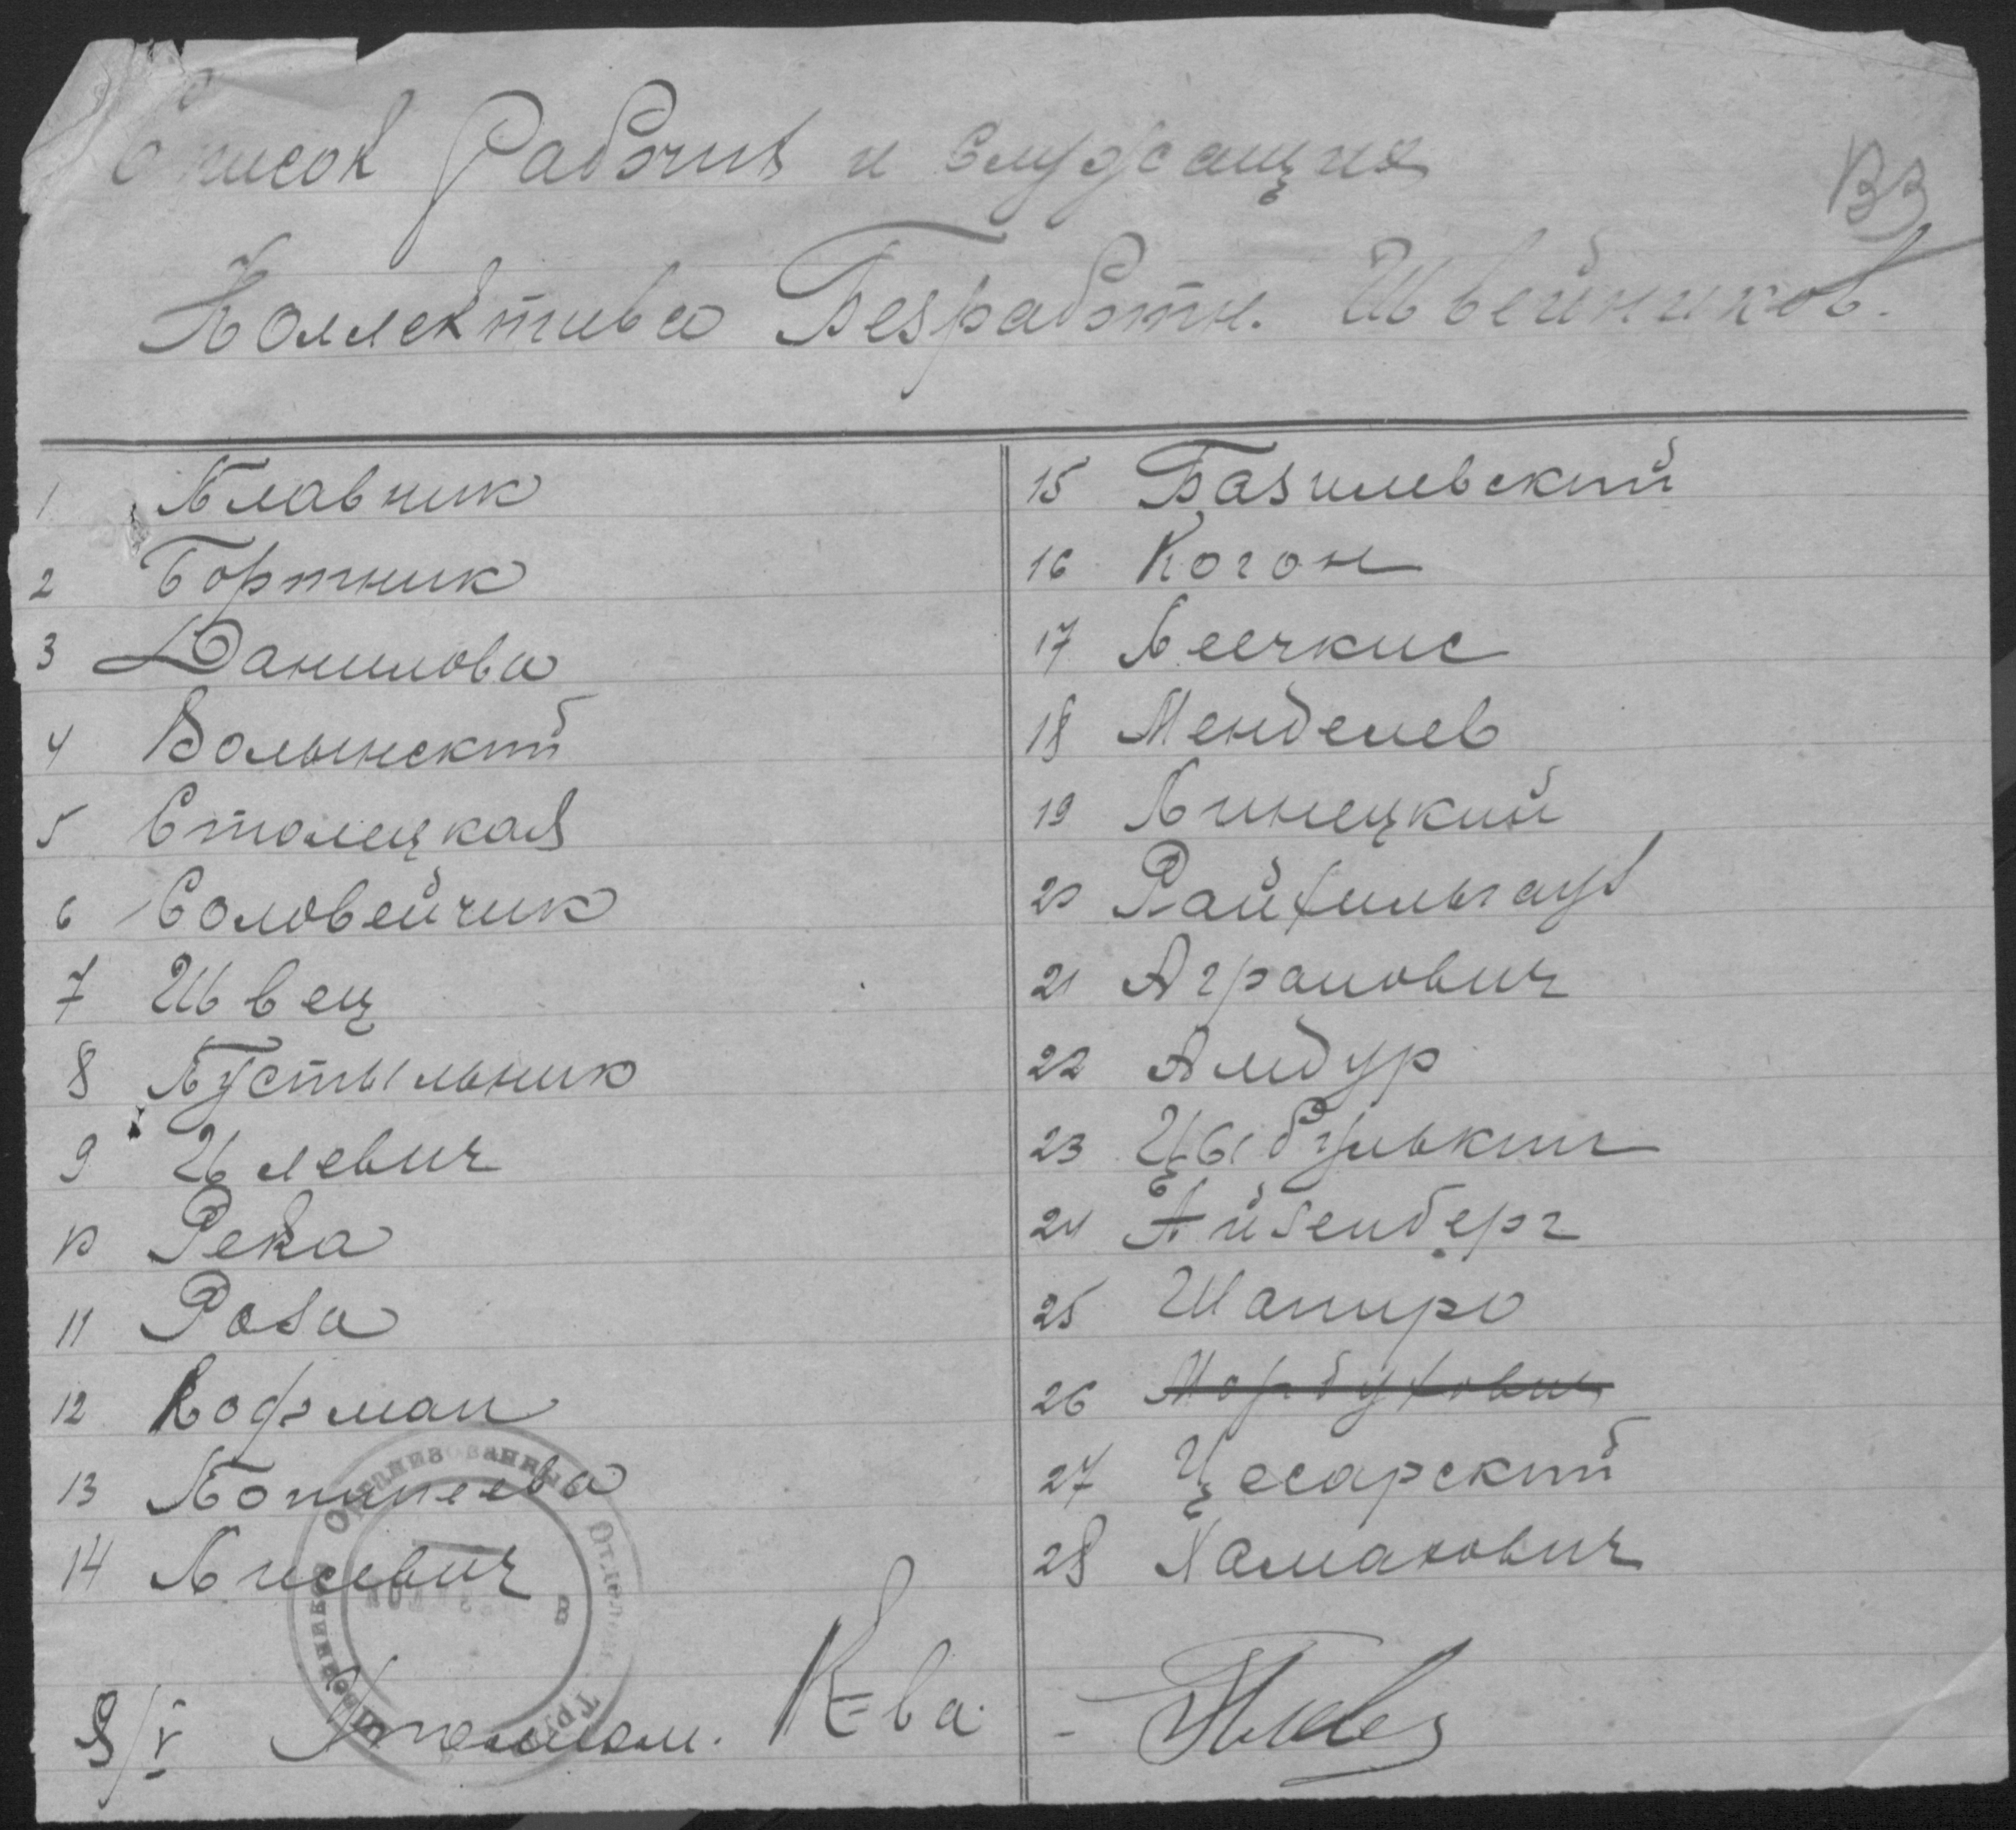 Список Рабочих и Служащих
Коллектива Безработн. Швейников.
1 Плавник
2 Бортник
3 Данилова
4 Волынский
5 Столецкая
6 Соловейчик
7 Швец
8 Пустыльник
9 Илевич
10 Река
11 Роза
12 Кофман
13
14 Лисевич
15 Базилевский
16 Когон
17
18 Менделев
19 Линецкий
20 Райхильгауз
21 Агранович
22 Амдур
23 Цыбулькин
24 Айзенберг
25 Шапиро
26 Мордухович
27 Цесарский
28 Хамакович
9/V К-ва
Организованный Отделом Труда
Швейников